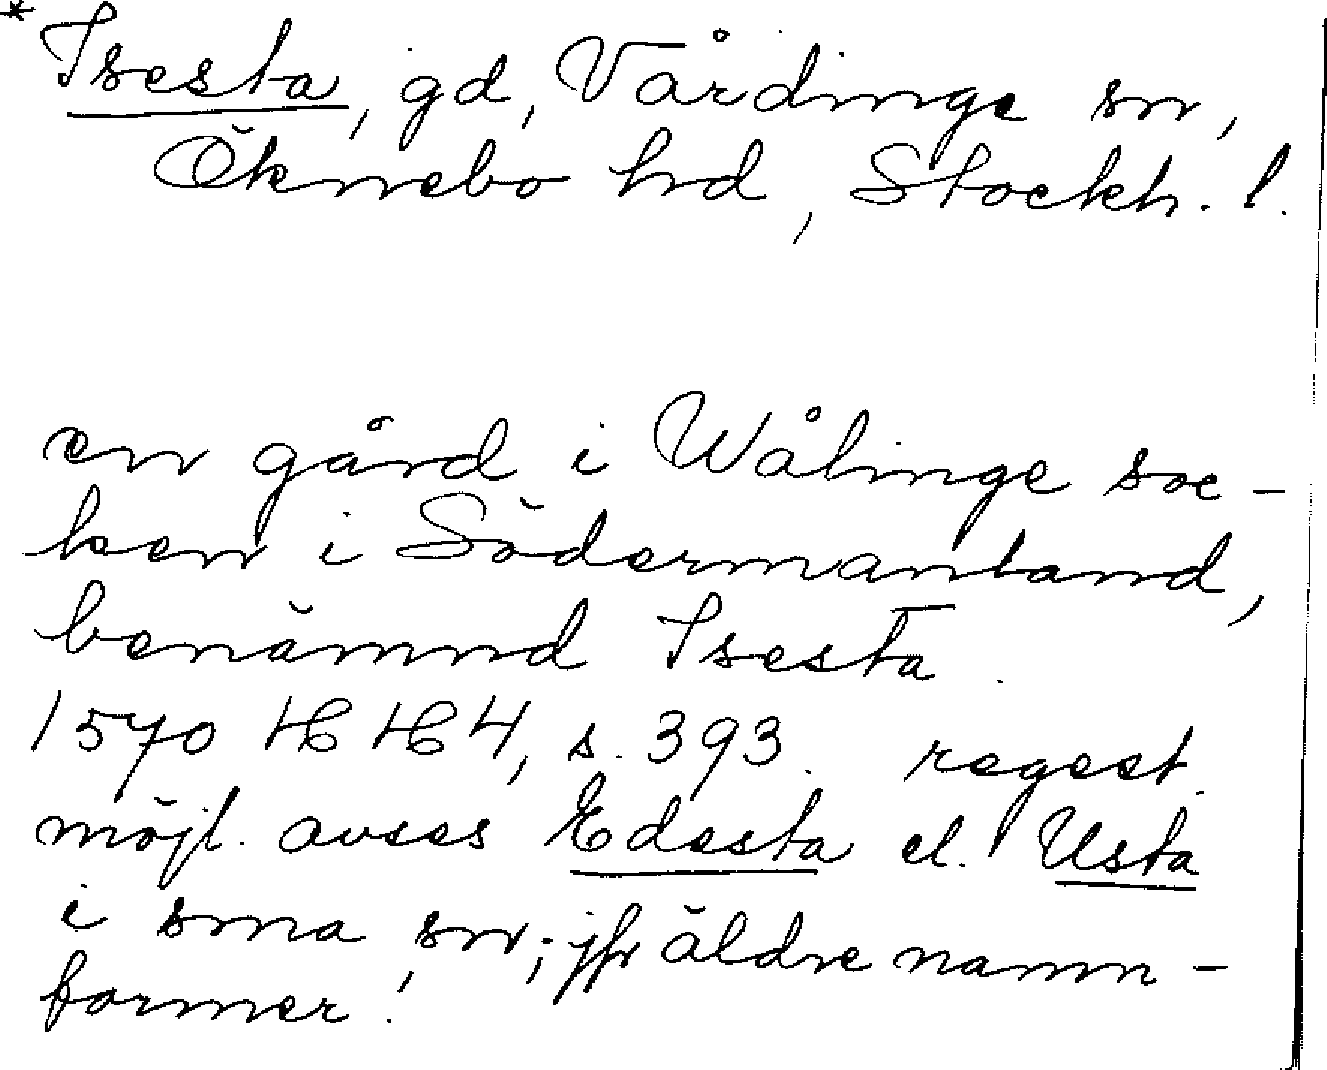 *Isesta, gd, Vårdinge sn,
Öknebo hd, Stockh. l.
en gård i Wålinge soc-
ken i Södermanland,
benämnd Isesta.
1570 HH 4, s. 393. regest.
möjl. avses Edesta el. Usta
i sma sn; jfr äldre namn-
former!